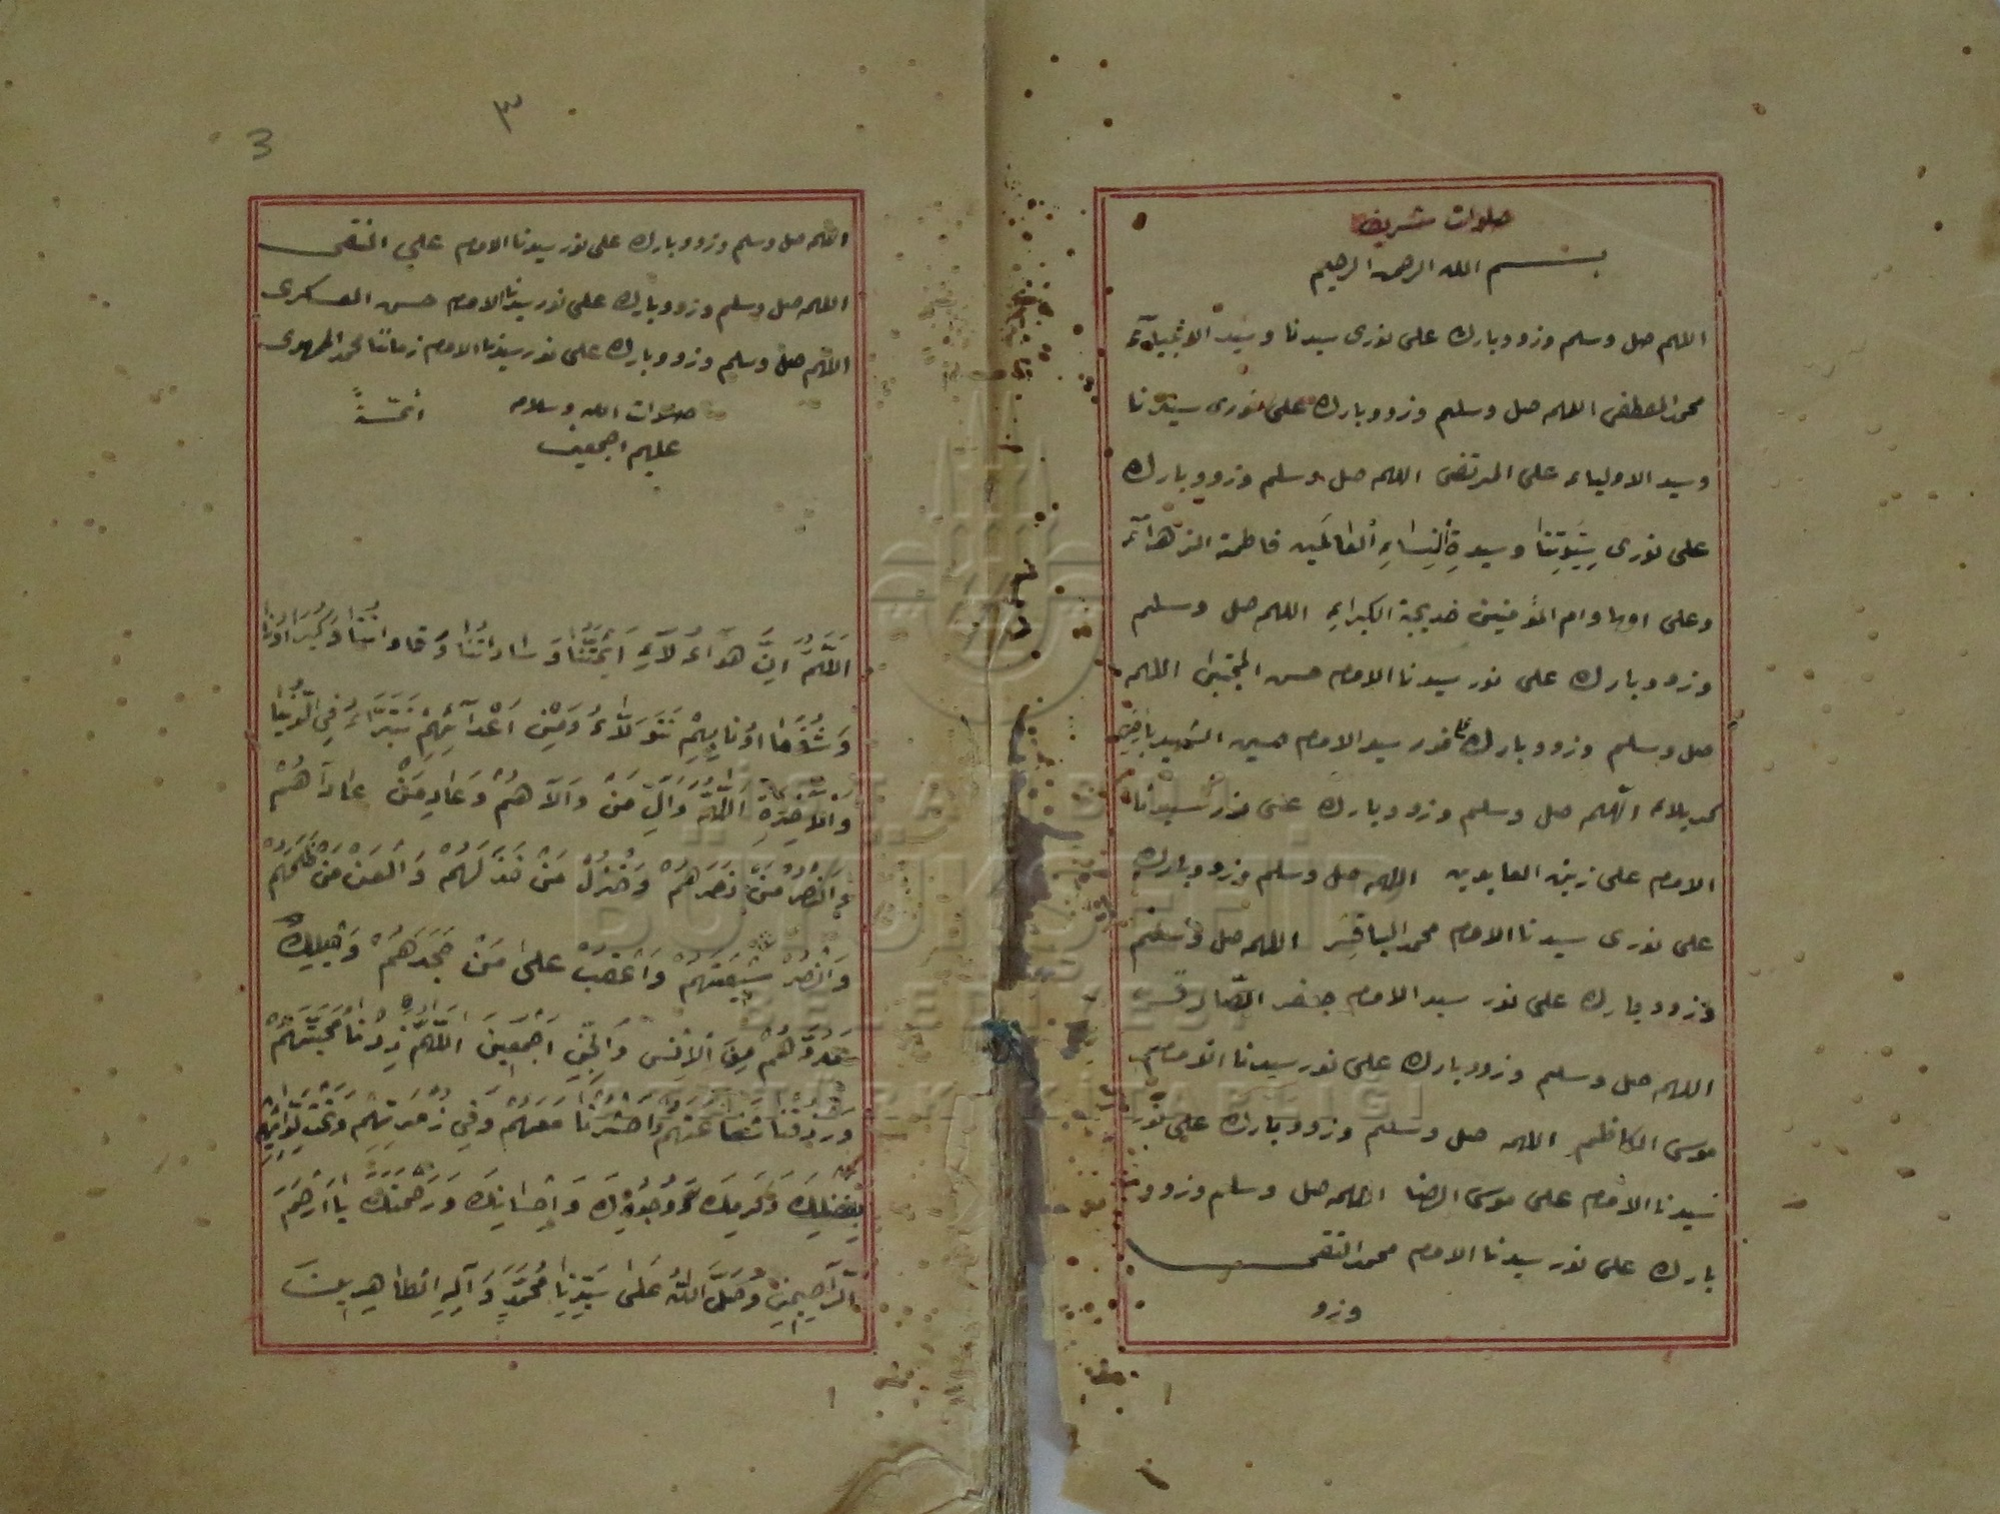 صلوات شريف
بسم الله الرحمن الرحيم
اللهم صل وسلم وزد وبارك على نورى سيدنا وسيد الانبيآء
محمد المصطفى اللهم صل وسلم وزد وبارك على نورى سيدنا
وسيد الاولياء على المرتضى اللهم صل وسلم وزد وبارك
على نورى سَيِّدَتِنَا وسيدةِ النِسَاءِ العَالَمين فاطمة الزهرآء
وعلى امها وام المؤمنين خديجة الكبراء اللهم صل وسلم
وزد وبارك على نور سيدنا الامام حسن المجتبى اللهم
صل وسلم وزد وبارك على نور سيد الامام حسين الشهيد بارض
كربلاء اللهم صل وسلم وزد وبارك على نور سيدنا
الامام على زين العابدين اللهم صل وسلم وزد وبارك
على نورى سيدنا الامام محمد الباقِر اللهم صل وسلم
وزد وبارك على نور سيد الامام جعفر الصّادق
اللهم صل وسلم وزد وبارك على نور سيدنا الامام
موسى الكاظم اللهم صل وسلم وزد وبارك على نور
سيدنا الامام على موسى الرضا اللهم صل وسلم وزد و
بارك على نور سيدنا الامام محمد التقى
وزد
٣
3
اللهم صل وسلم وزد وبارك على نور سيدنا الامام على النقى
اللهم صل وسلم وزد وبارك على نور سيدنا الامام حسن العسكرى
اللهم صل وسلم وزد وبارك على نور سيدنا الامام زماننا محمد المهدى
صلوات الله وسلامه
عليهم اجمعين
اَللّهُمَّ اِنَّ هَوآءُلآَءِ اَئِمَّتُنَا وَسَادَاتُنَا وَقَادَاتُنَا وَكُبَرَاؤُنَا
وَشُفَعَااؤُنَا بِهِمْ نَتَوَلَّاءُ وَمِنْ اَعْدَآئِهِمْ نَتَبَرَّاءُ فِي الدُّنْيَا
وَالْآخِرَةِ اَللّهُمَّ وَالِ مَنْ وَالَاهُمْ وَعَادِ مَنْ عَادَاهُمْ
وَانْصُرْ مَنْ نَصَرَهُمْ وَخْذُلْ مَنْ خَذَلَهُمْ وَالْعَنْ مَنْ ظَلَمَهُمْ
وَانْصُرْ شِيعَتَهُمْ وَاغْضَبْ عَلىٰ مَنْ جَحَدَهُمْ وَاهْلِكْ
عَدُوَّهُمْ مِنَ الْاِنْسِ وَالْجِنِّ اَجْمَعِينَ اَللّهُمَّ زِدْنَا مَحَبَّتَهُمْ
وَرْزُقْنَا شَفَاعَتَهُمْ وَاحْشُرْنَا مَعَهُمْ وَفِي زُمْرَتِهِمْ وَتَحْتَ لِوَائِهِمْ
بِفَضْلِكَ وَكَرَمِكَ وَجُودِكَ وَاِحْسَانِكَ وَرَحْمَتِكَ يَا اَرْحَمَ
الرَّاحِمِينَ وَصَلَّ اللّهُ عَلىٰ سَيِّدِنَا مُحَمَّدٍ وَآلِهِ الطَّاهِرِينَ
İSTANBUL
BÜYÜKŞEHİR
BELEDİYESİ
ATATÜRK KİTAPLIĞI